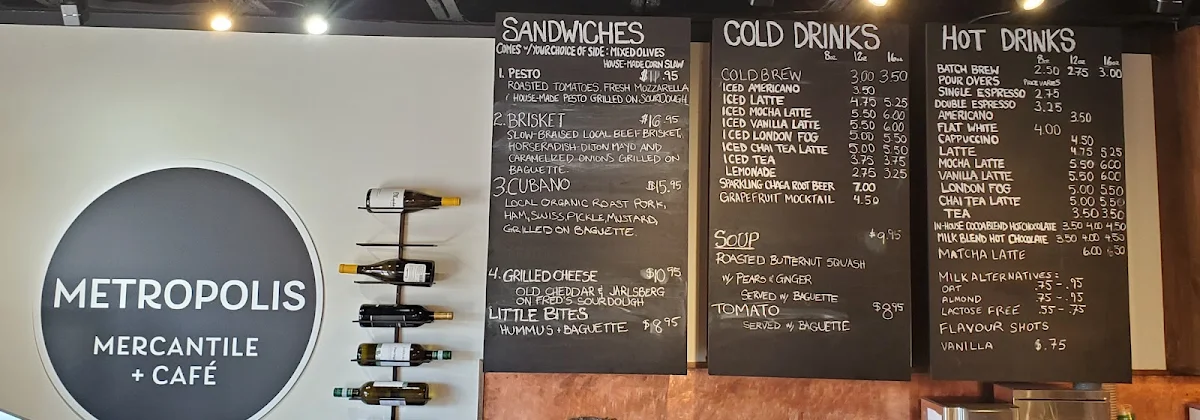 METROPOLIS
MERCANTILE
+ CAFÉ
SANDWICHES
COMES W/ YOUR CHOICE OF SIDE: MIXED OLIVES
HOUSE-MADE CORN SLAW
1. PESTO .95
ROASTED TOMATOES, FRESH MOZZARELLA
/ HOUSE-MADE PESTO GRILLED ON SOURDOUGH
2. BRISKET $16.95
SLOW-BRAISED LOCAL BEEF BRISKET,
HORSERADISH-DIJON MAYO AND
CARAMELIZED ONIONS GRILLED ON
BAGUETTE.
3. CUBANO $15.95
LOCAL ORGANIC ROAST PORK,
HAM, SWISS, PICKLE, MUSTARD,
GRILLED ON BAGUETTE.
4. GRILLED CHEESE $10.95
OLD CHEDDAR & JARLSBERG
ON FRED'S SOURDOUGH
LITTLE BITES
HUMMUS + BAGUETTE $8.95
COLD DRINKS
8oz 12oz 16oz
COLD BREW 3.00 3.50
ICED AMERICANO 3.50
ICED LATTE 4.75 5.25
ICED MOCHA LATTE 5.50 6.00
ICED VANILLA LATTE 5.50 6.00
ICED LONDON FOG 5.00 5.50
ICED CHAI TEA LATTE 5.00 5.50
ICED TEA 3.75 3.75
LEMONADE 2.75 3.25
SPARKLING CHAGA ROOT BEER 7.00
GRAPEFRUIT MOCKTAIL 4.50
SOUP $9.95
ROASTED BUTTERNUT SQUASH
W/ PEARS & GINGER
SERVED W/ BAGUETTE
TOMATO $8.95
SERVED W/ BAGUETTE
HOT DRINKS
8oz 12oz 16oz
BATCH BREW 2.50 2.75 3.00
POUR OVERS PRICE VARIES
SINGLE ESPRESSO 2.75
DOUBLE ESPRESSO 3.25
AMERICANO 3.50
FLAT WHITE 4.00
CAPPUCCINO 4.50
LATTE 4.75 5.25
MOCHA LATTE 5.50 6.00
VANILLA LATTE 5.50 6.00
LONDON FOG 5.00 5.50
CHAI TEA LATTE 5.00 5.50
TEA 3.50 3.50
IN-HOUSE COCOA BLEND HOT CHOCOLATE 3.50 4.00 4.50
MILK BLEND HOT CHOCOLATE 3.50 4.00 4.50
MATCHA LATTE 6.00 6.50
MILK ALTERNATIVES:
OAT .75 - .95
ALMOND .75 - .95
LACTOSE FREE .55 - .75
FLAVOUR SHOTS
VANILLA $.75